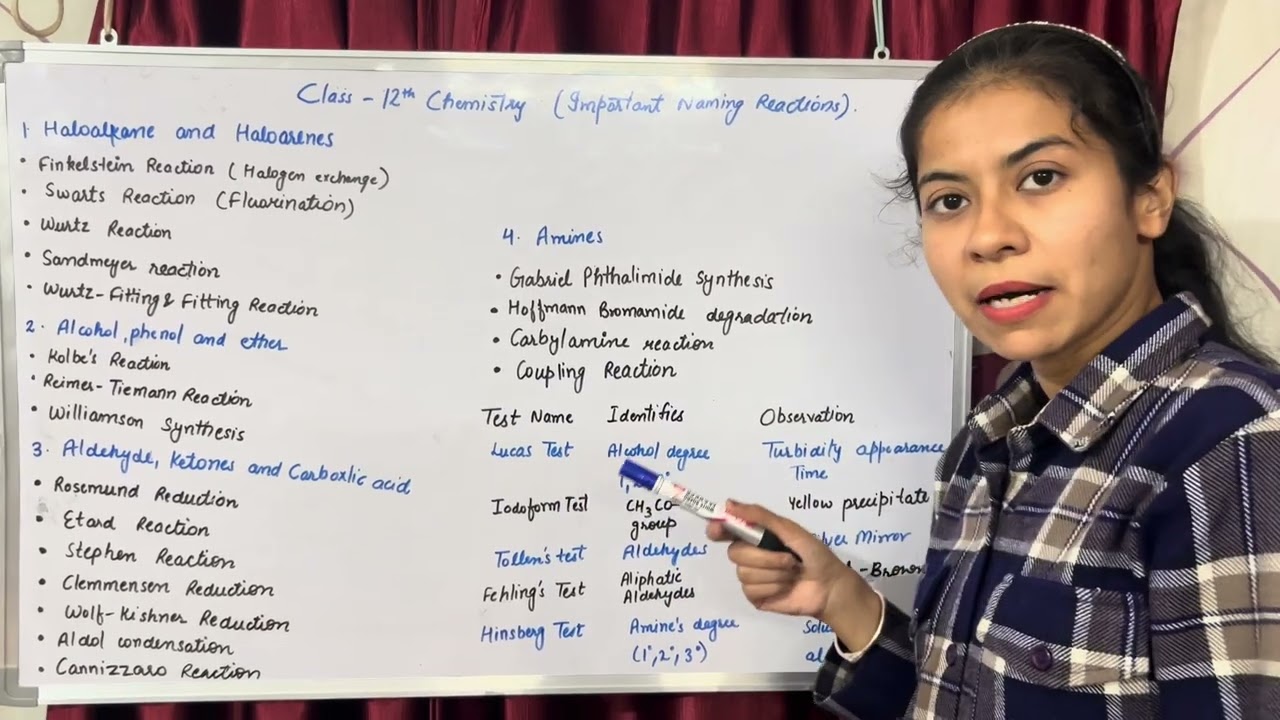 Class - 12th Chemistry (Important Naming Reactions).
1. Haloalkane and Haloarenes
• Finkelstein Reaction (Halogen exchange)
• Swarts Reaction (Fluarination)
• Wurtz Reaction
• Sandmeyer reaction
• Wurtz-Fitting & Fitting Reaction
2. Alcohol, phenol and ether
• Kolbe's Reaction
• Reimer-Tiemann Reaction
• Williamson Synthesis
3. Aldehyde, Ketones and Carboxlic acid
• Rosemund Reduction
• Etard Reaction
• Stephen Reaction
• Clemmensen Reduction
• Wolf-Kishner Reduction
• Aldol condensation
• Cannizzaro Reaction
4. Amines
• Gabriel Phthalimide Synthesis
• Hoffmann Bromamide degradation
• Carbylamine reaction
• Coupling Reaction
Test Name Identifies Observation
Lucas Test Alcohol degree Turbidity appearance
Time
Iodoform Test CH3CO Yellow precipitate
group
Tollen's test Aldehydes Mirror
Fehling's Test Aliphatic Aldehydes - Brown
Hinsberg Test Amine's degree
(1°, 2°, 3°)